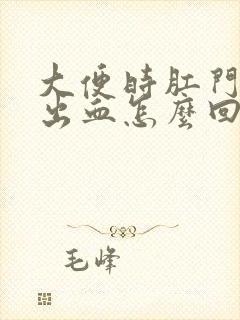 大便時肛門
出血怎麼回
毛峰